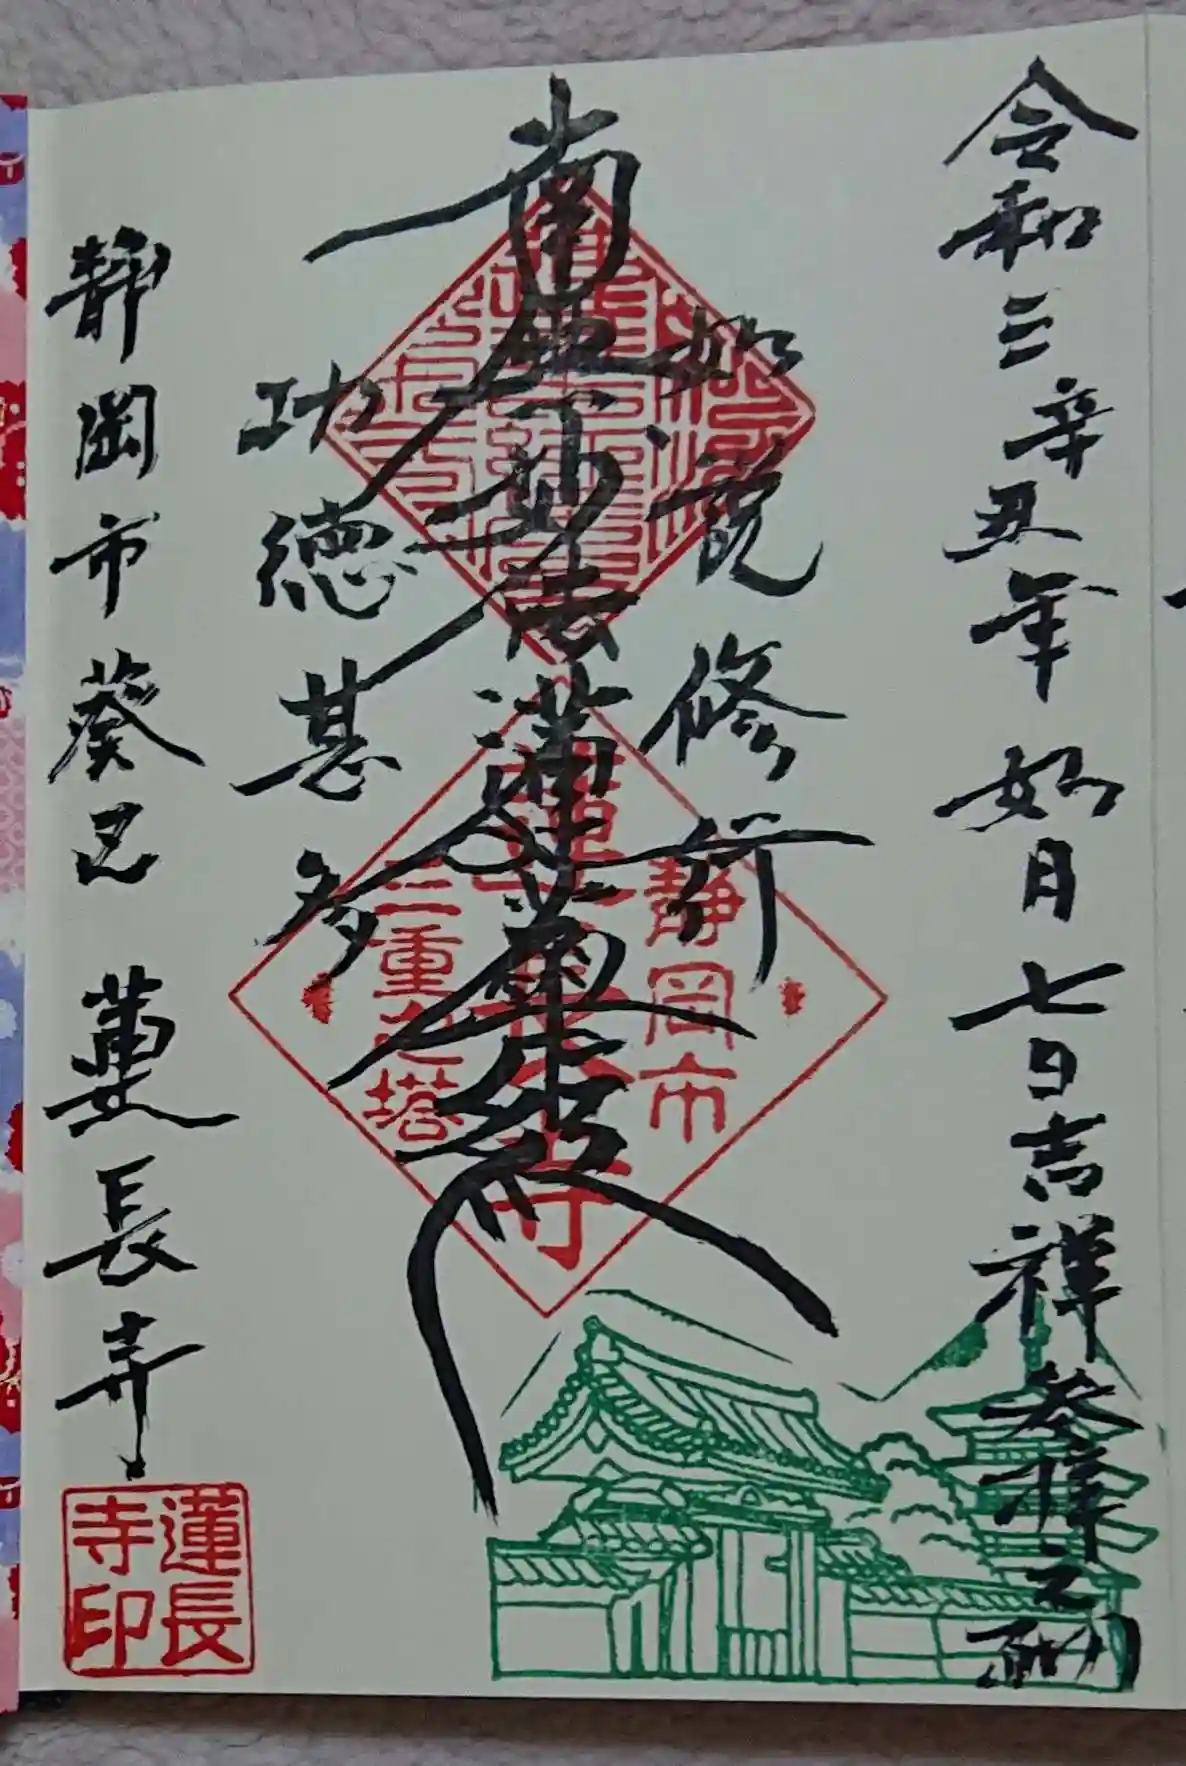 令和三辛丑年如月七日吉祥参拝之砌
如説修行
南無妙法蓮華経
功徳甚多
静岡市葵区 蓮長寺
静岡市
蓮長寺
三重之塔
蓮長
寺印